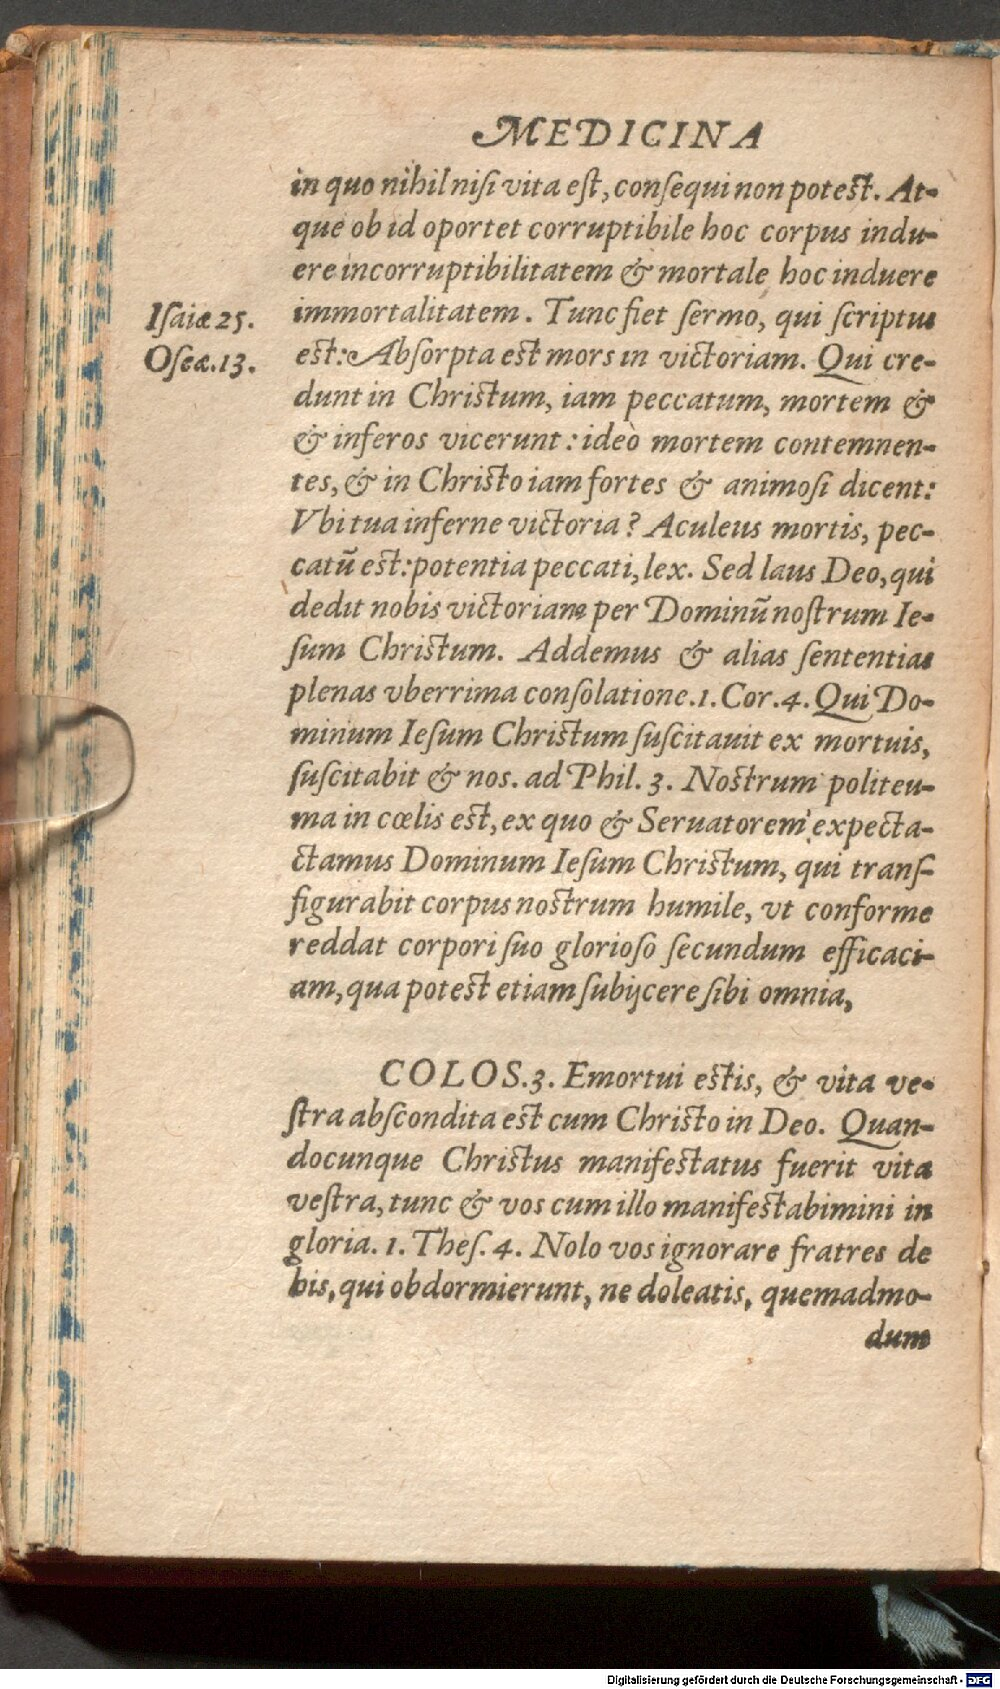 MEDICINA
in quo nihil nisi vita est, consequi non potest. At-
que ob id oportet corruptibile hoc corpus indu-
ere incorruptibilitatem & mortale hoc induere
immortalitatem. Tunc fiet sermo, qui scriptus
Isaiæ 25.
est: Absorpta est mors in victoriam. Qui cre-
Oseæ. 13.
dunt in Christum, iam peccatum, mortem &
& inferos vicerunt: ideò mortem contemnen-
tes, & in Christo iam fortes & animosi dicent:
Vbi tua inferne victoria? Aculeus mortis, pec-
catū est: potentia peccati, lex. Sed laus Deo, qui
dedit nobis victoriam per Dominū nostrum Ie-
sum Christum. Addemus & alias sententias
plenas vberrima consolatione. 1. Cor. 4. Qui Do-
minum Iesum Christum suscitauit ex mortuis,
suscitabit & nos. ad Phil. 3. Nostrum politeu-
ma in cœlis est, ex quo & Seruatorem expecta-
ctamus Dominum Iesum Christum, qui trans-
figurabit corpus nostrum humile, vt conforme
reddat corpori suo glorioso secundum efficaci-
am, qua potest etiam subijcere sibi omnia,
COLOS. 3. Emortui estis, & vita ve-
stra abscondita est cum Christo in Deo. Quan-
docunque Christus manifestatus fuerit vita
vestra, tunc & vos cum illo manifestabimini in
gloria. 1. Thes. 4. Nolo vos ignorare fratres de
his, qui obdormierunt, ne doleatis, quemadmo-
dum
Digitalisierung gefördert durch die Deutsche Forschungsgemeinschaft - DFG